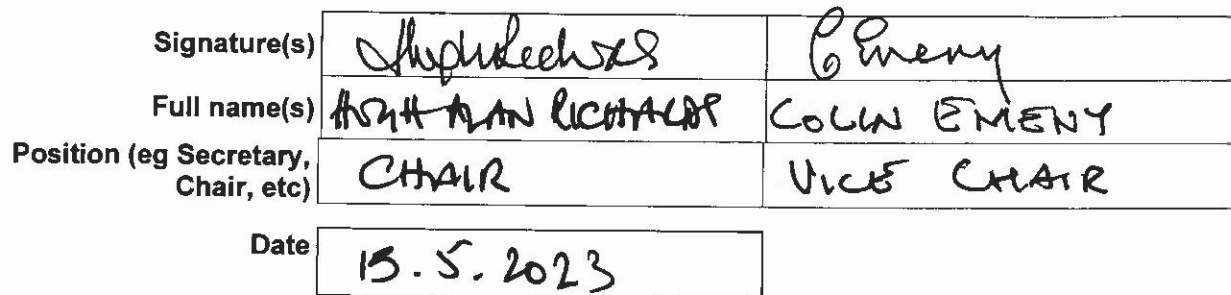 Signature(s) C Emeny
Full name(s) HUGH ALAN RICHARDS COLIN EMENY
Position (eg Secretary, Chair, etc) CHAIR VICE CHAIR
Date 15.5.2023